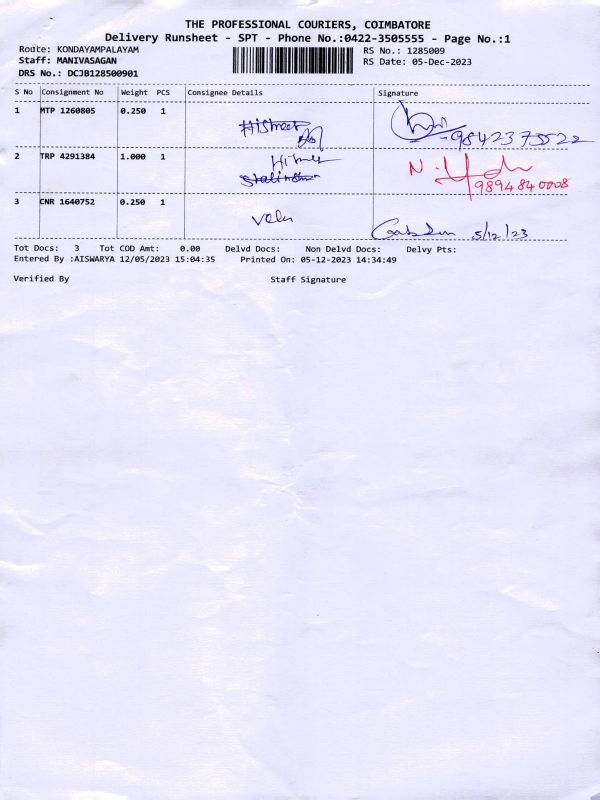 THE PROFESSIONAL COURIERS, COIMBATORE
Delivery Runsheet - SPT - Phone No.:0422-3505555 - Page No.:1
Route: KONDAYAMPALAYAM RS No.: 1285009
Staff: MANIVASAGAN RS Date: 05-Dec-2023
DRS No.: DCJB128500901
S No Consignment No Weight PCS Consignee Details Signature
1 MTP 1260805 0.250 1
9842375522
2 TRP 4291384 1.000 1
9894840008
3 CNR 1640752 0.250 1
5/12/23
Tot Docs: 3 Tot COD Amt: 0.00 Delvd Docs: Non Delvd Docs: Delvy Pts:
Entered By :AISWARYA 12/05/2023 15:04:35 Printed On: 05-12-2023 14:34:49
Verified By Staff Signature